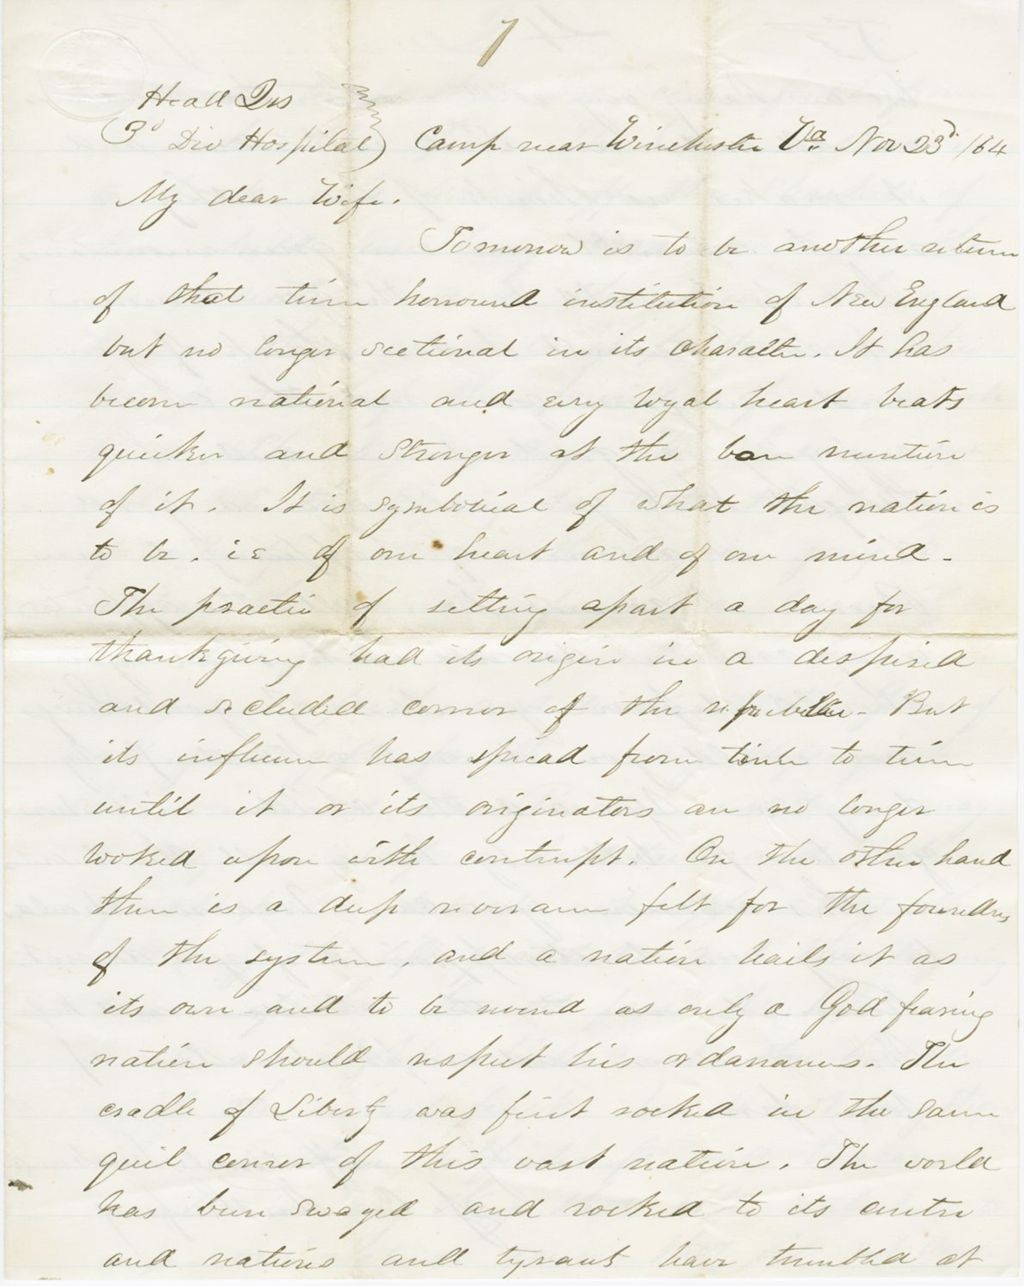 1
Head Qrs
(3d Div Hospital) Camp near Winchester Va. Nov 23d /64
My dear Wife.
Tomorrow is to be another return
of that time honoured institution of New England
but no longer sectional in its character. It has
become national and every loyal heart beats
quicker and stronger at the bare mention
of it. It is symbolical of what the nation is
to be. ie of one heart and of one mind.
The practice of setting apart a day for
thanksgiving had its origin in a despised
and secluded corner of the republic. But
its influence has spread from time to time
until it or its originators are no longer
looked upon with contempt. On the other hand
there is a deep reverance felt for the founders
of the system, and a nation hails it as
its own and to be as only a God fearing
nation should respect his ordanances. The
cradle of Liberty was first rocked in the same
corner of this vast nation. The world
has been swayed and rocked to its centre
and nations and tyrants have trembled at